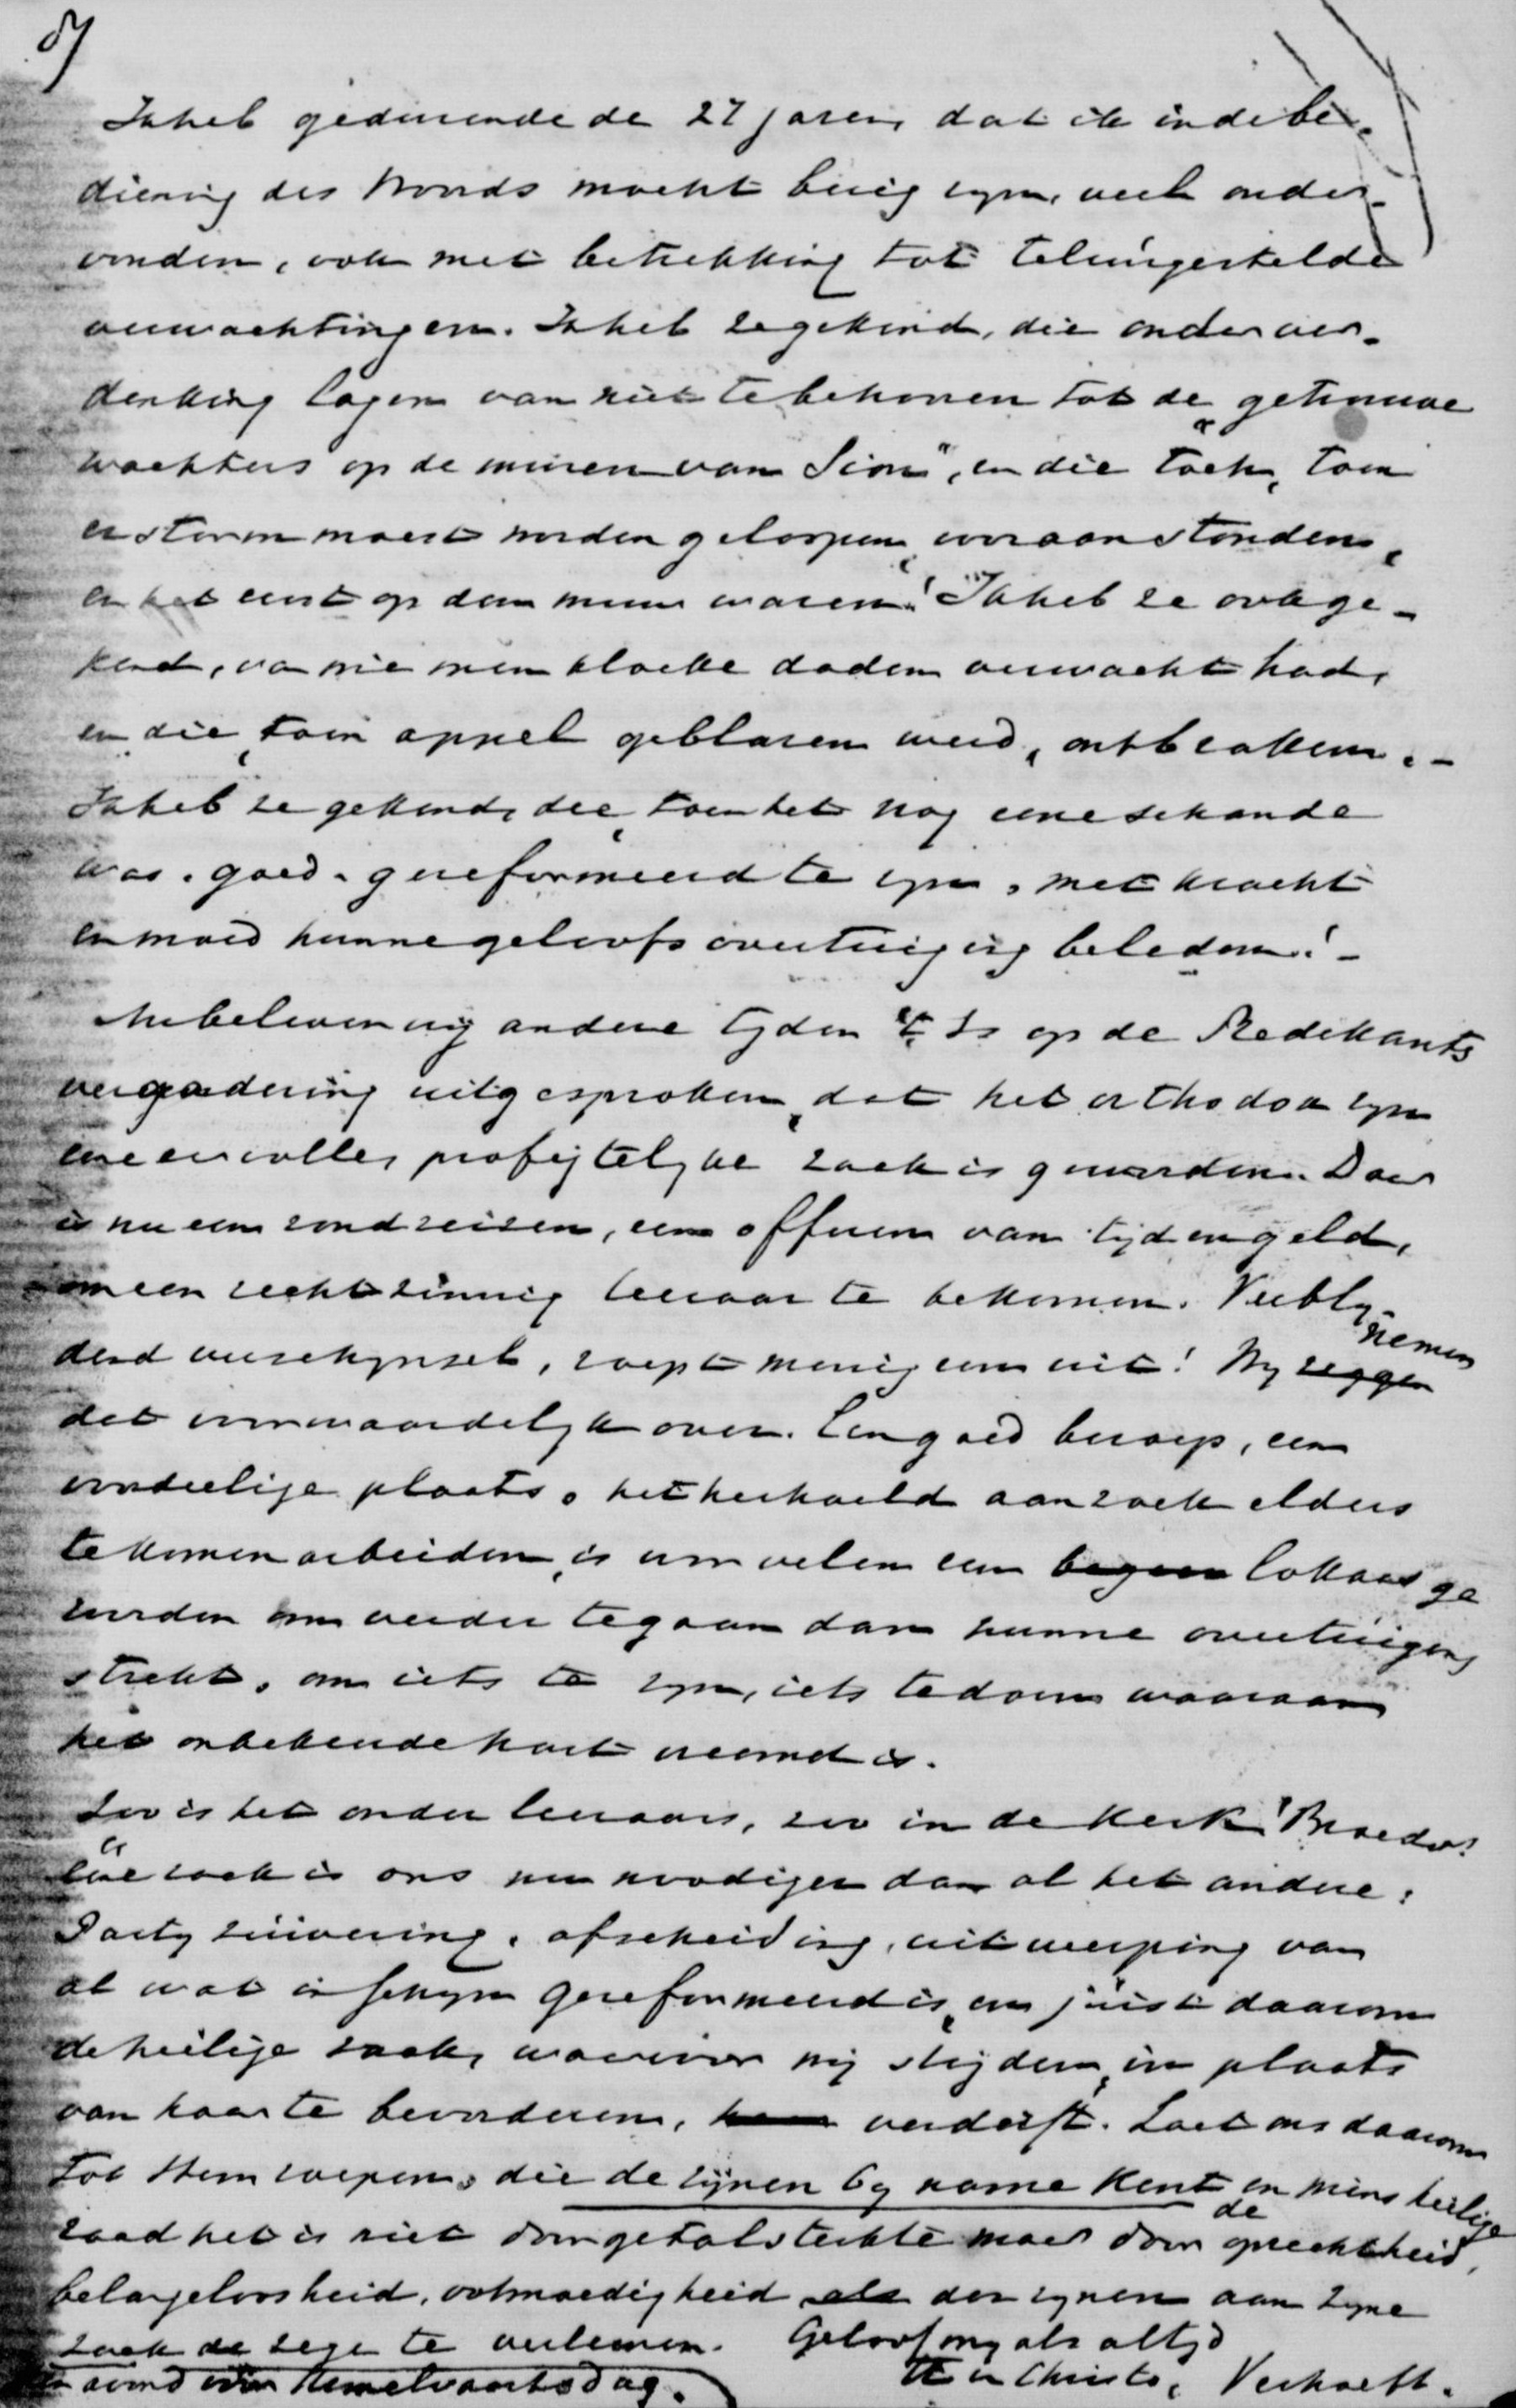 Ik heb gedurende de 27 jaren, dat ik in de be-
diening des Woords mocht bezig zyn, veel onder-
vonden, ook met betrekking tot teleurgestelde
verwachtingen. Ik heb ze gekend, die onder ver-
denking lagen van niet te behooren tot de "getrouwe
wachters op de muren van Sion", en die toch, toen
er storm moest worden geloopen, vooraan stonden,
en het eerst op den muur waren! Ik heb ze ook ge-
kend, van wie men kloeke daden verwacht had,
en die, toen appel geblazen werd, ontbraken. -
Ik heb ze gekend, die, toen het nog eene schande
was, goed-gereformeerd te zyn, met kracht
en moed hunne geloofsovertuiging beleden! -
Nu beleven wij andere tyden. Er is op de Predikants
vergadering uitgesproken, dat het orthodox zyn
eene eervolle, profijtelyke zaak is geworden. Daar
is nu een rondreizen, een offeren van tijd en geld,
om een rechtzinnig leeraar te bekomen. Verbly-
dend verschynsel, roept menigeen uit! Wy nemen
dit onvoorwaardelyk over. Een goed beroep, een
voordeelige plaats, het herhaald aanzoek elders
te komen arbeiden, is voor velen een lokaas ge
worden om verder te gaan dan hunne overtuiging
strekt, om iets te zyn, iets te doen waaraan
het onbekeerde hart vreemd is.
Zoo is het onder leeraars, zoo in de Kerk! Broeder!
Eéne zaak is ons nu noodiger dan al het andere:
Party zuivering, afscheiding, uitwerping van
al wat in schyn Gereformeerd is, en juist daarom
de heilige zaak, waarvoor wij strijden, in plaats
van haar te bevorderen, verderft. Laat ons daarom
tot Hem roepen, die de zijnen by name kent en wiens heilige
raad het is niet door getalsterkte maar door de oprechtheid,
belangeloosheid, ootmoedigheid der zynen aan zyne
zaak de zege te verleenen. Geloof my als altyd
avond voor Hemelvaartsdag. in Christo, Verhoeff.